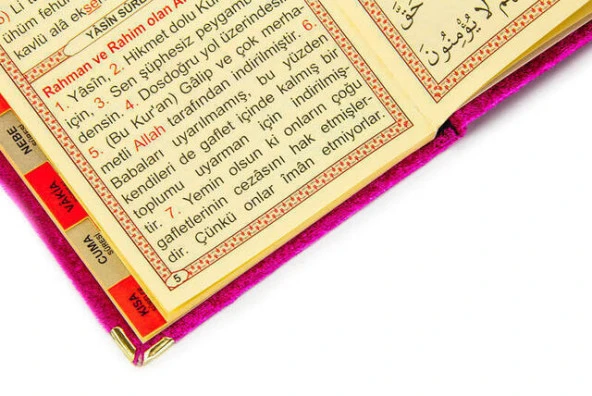 ûhum fehüm
kavlü alâ ekse
YÂSİN SÛRE
Rahman ve Rahim olan Al
1. Yâsîn, 2. Hikmet dolu Kur
için, 3. Sen şüphesiz peygamb
densin. 4. Dosdoğru yol üzerindes
5. (Bu Kur'an) Gâlip ve çok merha-
metli Allah tarafından indirilmiştir. 6.
Babaları uyarılmamış, bu yüzden
kendileri de gaflet içinde kalmış bir
toplumu uyarman için indirilmiş-
tir. 7. Yemin olsun ki onların çoğu
gafletlerinin cezasını hak etmişler-
dir. Çünkü onlar îmân etmiyorlar.
5
لَا يُؤْمِنُونَ
NEBE
SÛRESİ
VAKIA
CUMA
SÛRESİ
KISA